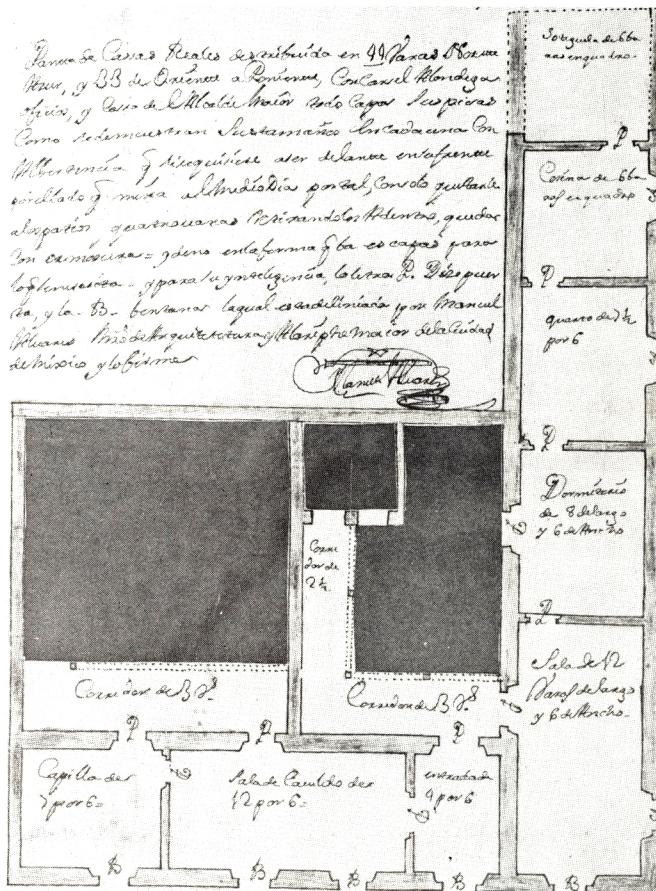 Planta de Casas Reales distribuida en 44 Varas Norte
Sur, y BB de Oriente a Poniente, Con Carsel Alondiga
oficios, y Casa de el Alcalde Maior todo Capas sus piesas
Como se demuestran Su tamaño en cada una Con
Albertencia q si se quisiere aser delante en la frente
por el lado q mira al medio Dia portal, Con solo quitarle
al patio quatro varas Retirandolo Adentro, quedar
con ermosura = y de no en la forma q ba es capas para
lo q se nesesita = y para su ynteligencia, la letra P. Dise puer
ta, y la B. bentana la qual esta deliniada por Manuel
Albares Mro de Arquitectura y Alarife Maior de la Ciudad
de Mexico y lo firme
Manuel Alvares
de 6 ba
ras en quadro
P
Cosina de 6 ba
ras en quadro
P
quarto de 7 ½
por 6
P
Dormitorio
de 8 de largo
y 6 de Ancho
P
P
Corre
dor de
2 ½
Sala de 12
Varas de largo
y 6 de Ancho
P
Corredor de B Vs
Corredor de B Vs
P
P
P
Capilla de
7 por 6 =
P
Sala de Cauildo de
12 por 6 =
entrada de
4 por 6
P
B
B
B
B
B